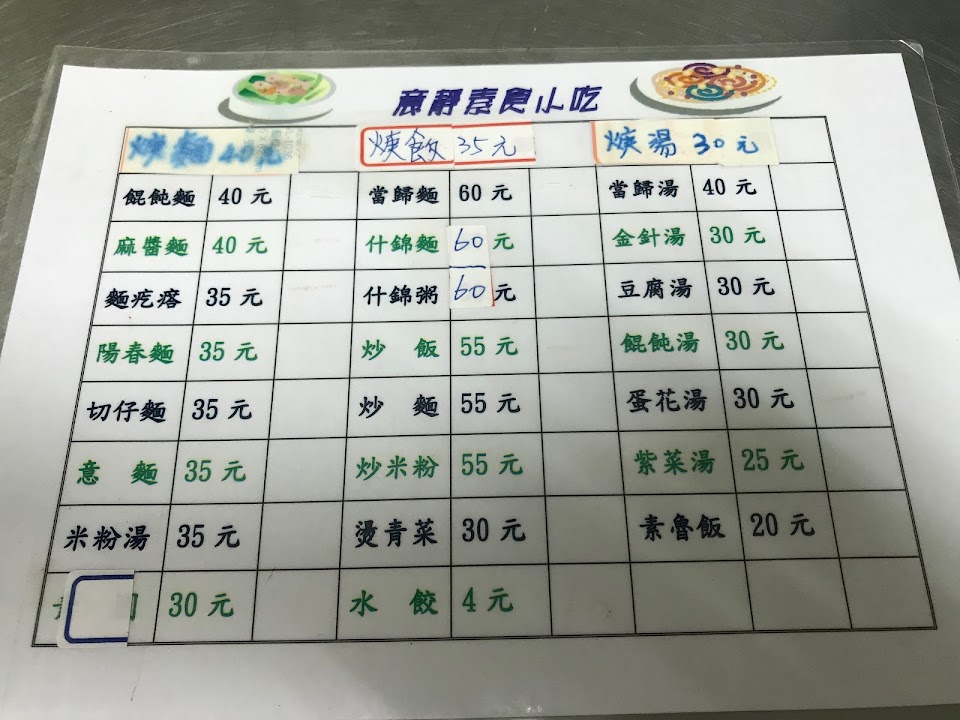 意靜素食小吃
焿麵 40元 焿飯 35元 焿湯 30元
餛飩麵 40元 當歸麵 60元 當歸湯 40元
麻醬麵 40元 什錦麵 60元 金針湯 30元
麵疙瘩 35元 什錦粥 60元 豆腐湯 30元
陽春麵 35元 炒飯 55元 餛飩湯 30元
切仔麵 35元 炒麵 55元 蛋花湯 30元
意麵 35元 炒米粉 55元 紫菜湯 25元
米粉湯 35元 燙青菜 30元 素魯飯 20元
30元 水餃 4元